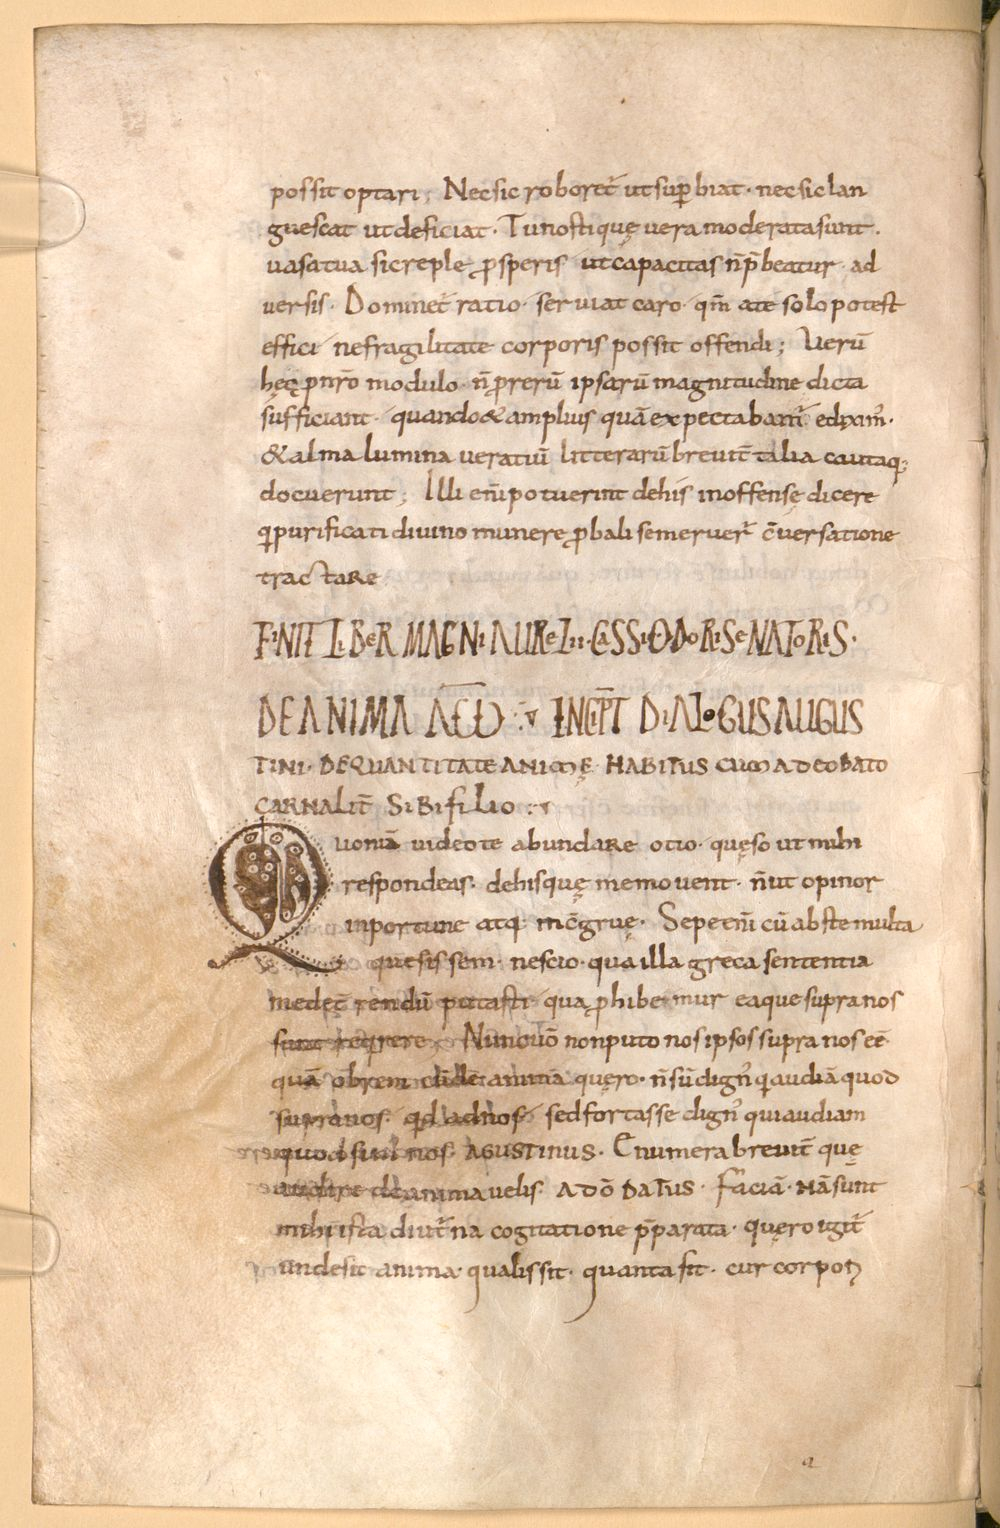 possit optari; Nec sic roboret̄ ut sup̄biat· nec sic lan
guescat ut deficiat· Tu nosti quę vera moderata sunt·
vasa tua sic reple p̱speris ut capacitas n̄ p̄beatur· ad
versis· Dominet̄ ratio· serviat caro· qm̄ a te solo potest
effici ne fragilitate corporis possit offendi; Verū
hęc p nr̄o modulo· n̄ p̱ rerū ipsarū magnitudine dicta
sufficiant· quando & amplius quā expectabam̄ edixim᾽·
& alma lumina veratiū litterarū brevit̄ talia cautaq;
docuerunt; Illi eni̅ potuerint de his inoffensę dicere
q̱ purificati divino munere p̱bali se meruer̄ c̄versatione
tractare
FINIT LIBER MAGNI AURELII· CASSIODORI SENATORIS·
DE ANIMA ACTŌ INCIP̄T DIALOGUS AUGUS
TINI· DE QUANTITATE ANIMĘ· HABITUS CUM ADEODATO
CARNALIT̄ SIBI FILIO
Quoniā video te abundare otio· quęso ut mihi
respondeas· de his quę me movent· n̄ ut opinor
inportune atq; inc̄gruę· Sepe eni̅ cū abs te multa
quesissem· nescio· qua illa greca sententia
me det̄rendū putasti· qua p̱hibemur ea que supra nos
sunt reqrere Nunc vō non puto nos ipsos supra nos eē
quā obrem cū de anima quęro· n̄ sū dign᾽ q̱ audiā quod
supra nos· qd̄ ad nos· sed fortasse dign᾽ qui audiam
quod sim nos· AGUSTINUS· Enumera brevit̄ quę
audire de anima velis· ADŌDATUS· Faciā· Nā sunt
mihi ista diut̄na cogitatione p̄parata· quęro igit̄
unde sit anima· qualis sit· quanta sit· cur corpori
a